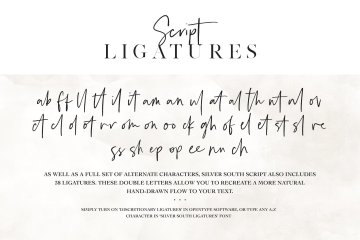 Script
LIGATURES
ab ff ll tt il it am an ul at al th nt al ov
ct cl d ot rr om on oo ck gh of el et st sl re
ss sh ep op ee nn ch
AS WELL AS A FULL SET OF ALTERNATE CHARACTERS, SILVER SOUTH SCRIPT ALSO INCLUDES
28 LIGATURES. THESE DOUBLE LETTERS ALLOW YOU TO RECREATE A MORE NATURAL
HAND-DRAWN FLOW TO YOUR TEXT.
SIMPLY TURN ON 'DISCRETIONARY LIGATURES' IN OPENTYPE SOFTWARE, OR TYPE ANY A-Z
CHARACTER IN 'SILVER SOUTH LIGATURES' FONT